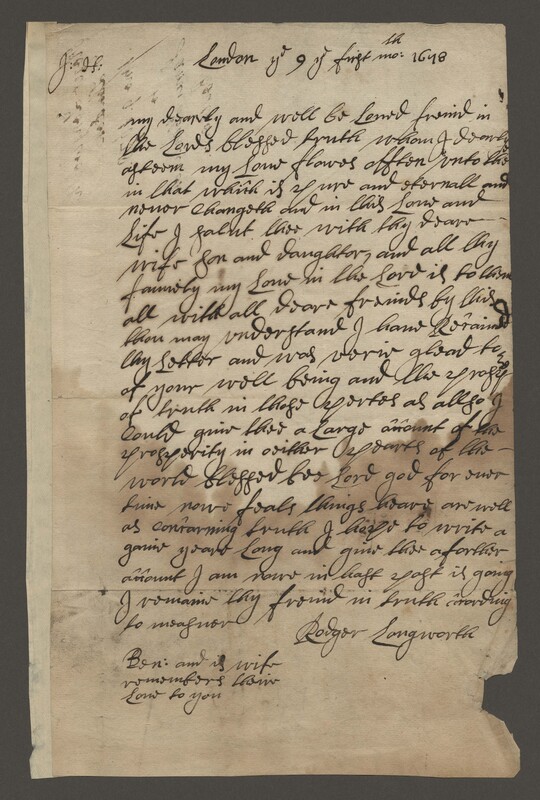 London ye 9 ye first mo:th 1678
my dearly and well be Loved freind in
the Lords blessed truth whom I dearly
asteem my Love flowes offten unto thee
in that which is pure and eternall and
never changeth and in this Love and
Life I salut thee with thy deare
wife son and daughter, and all thy
famely my Love in the Lord is to them
all with all deare freinds by this
thou may understand I have Recained
thy Letter and was verie glead to
of your well being and the
of truth in those partes as allso I
Could give thee a Large account of the
prosperity in oeither pearts of the
world blessed bee Lord god for ever
time nowe feals things heare are well
as concarning truth I hope to write a
gaine yeare Long and give thee a forther
account I am nowe in hast post is going
I remaine thy freind in truth according
to measuer
Rodger Longworth
Ben: and is wife
remembers theire
Love to you